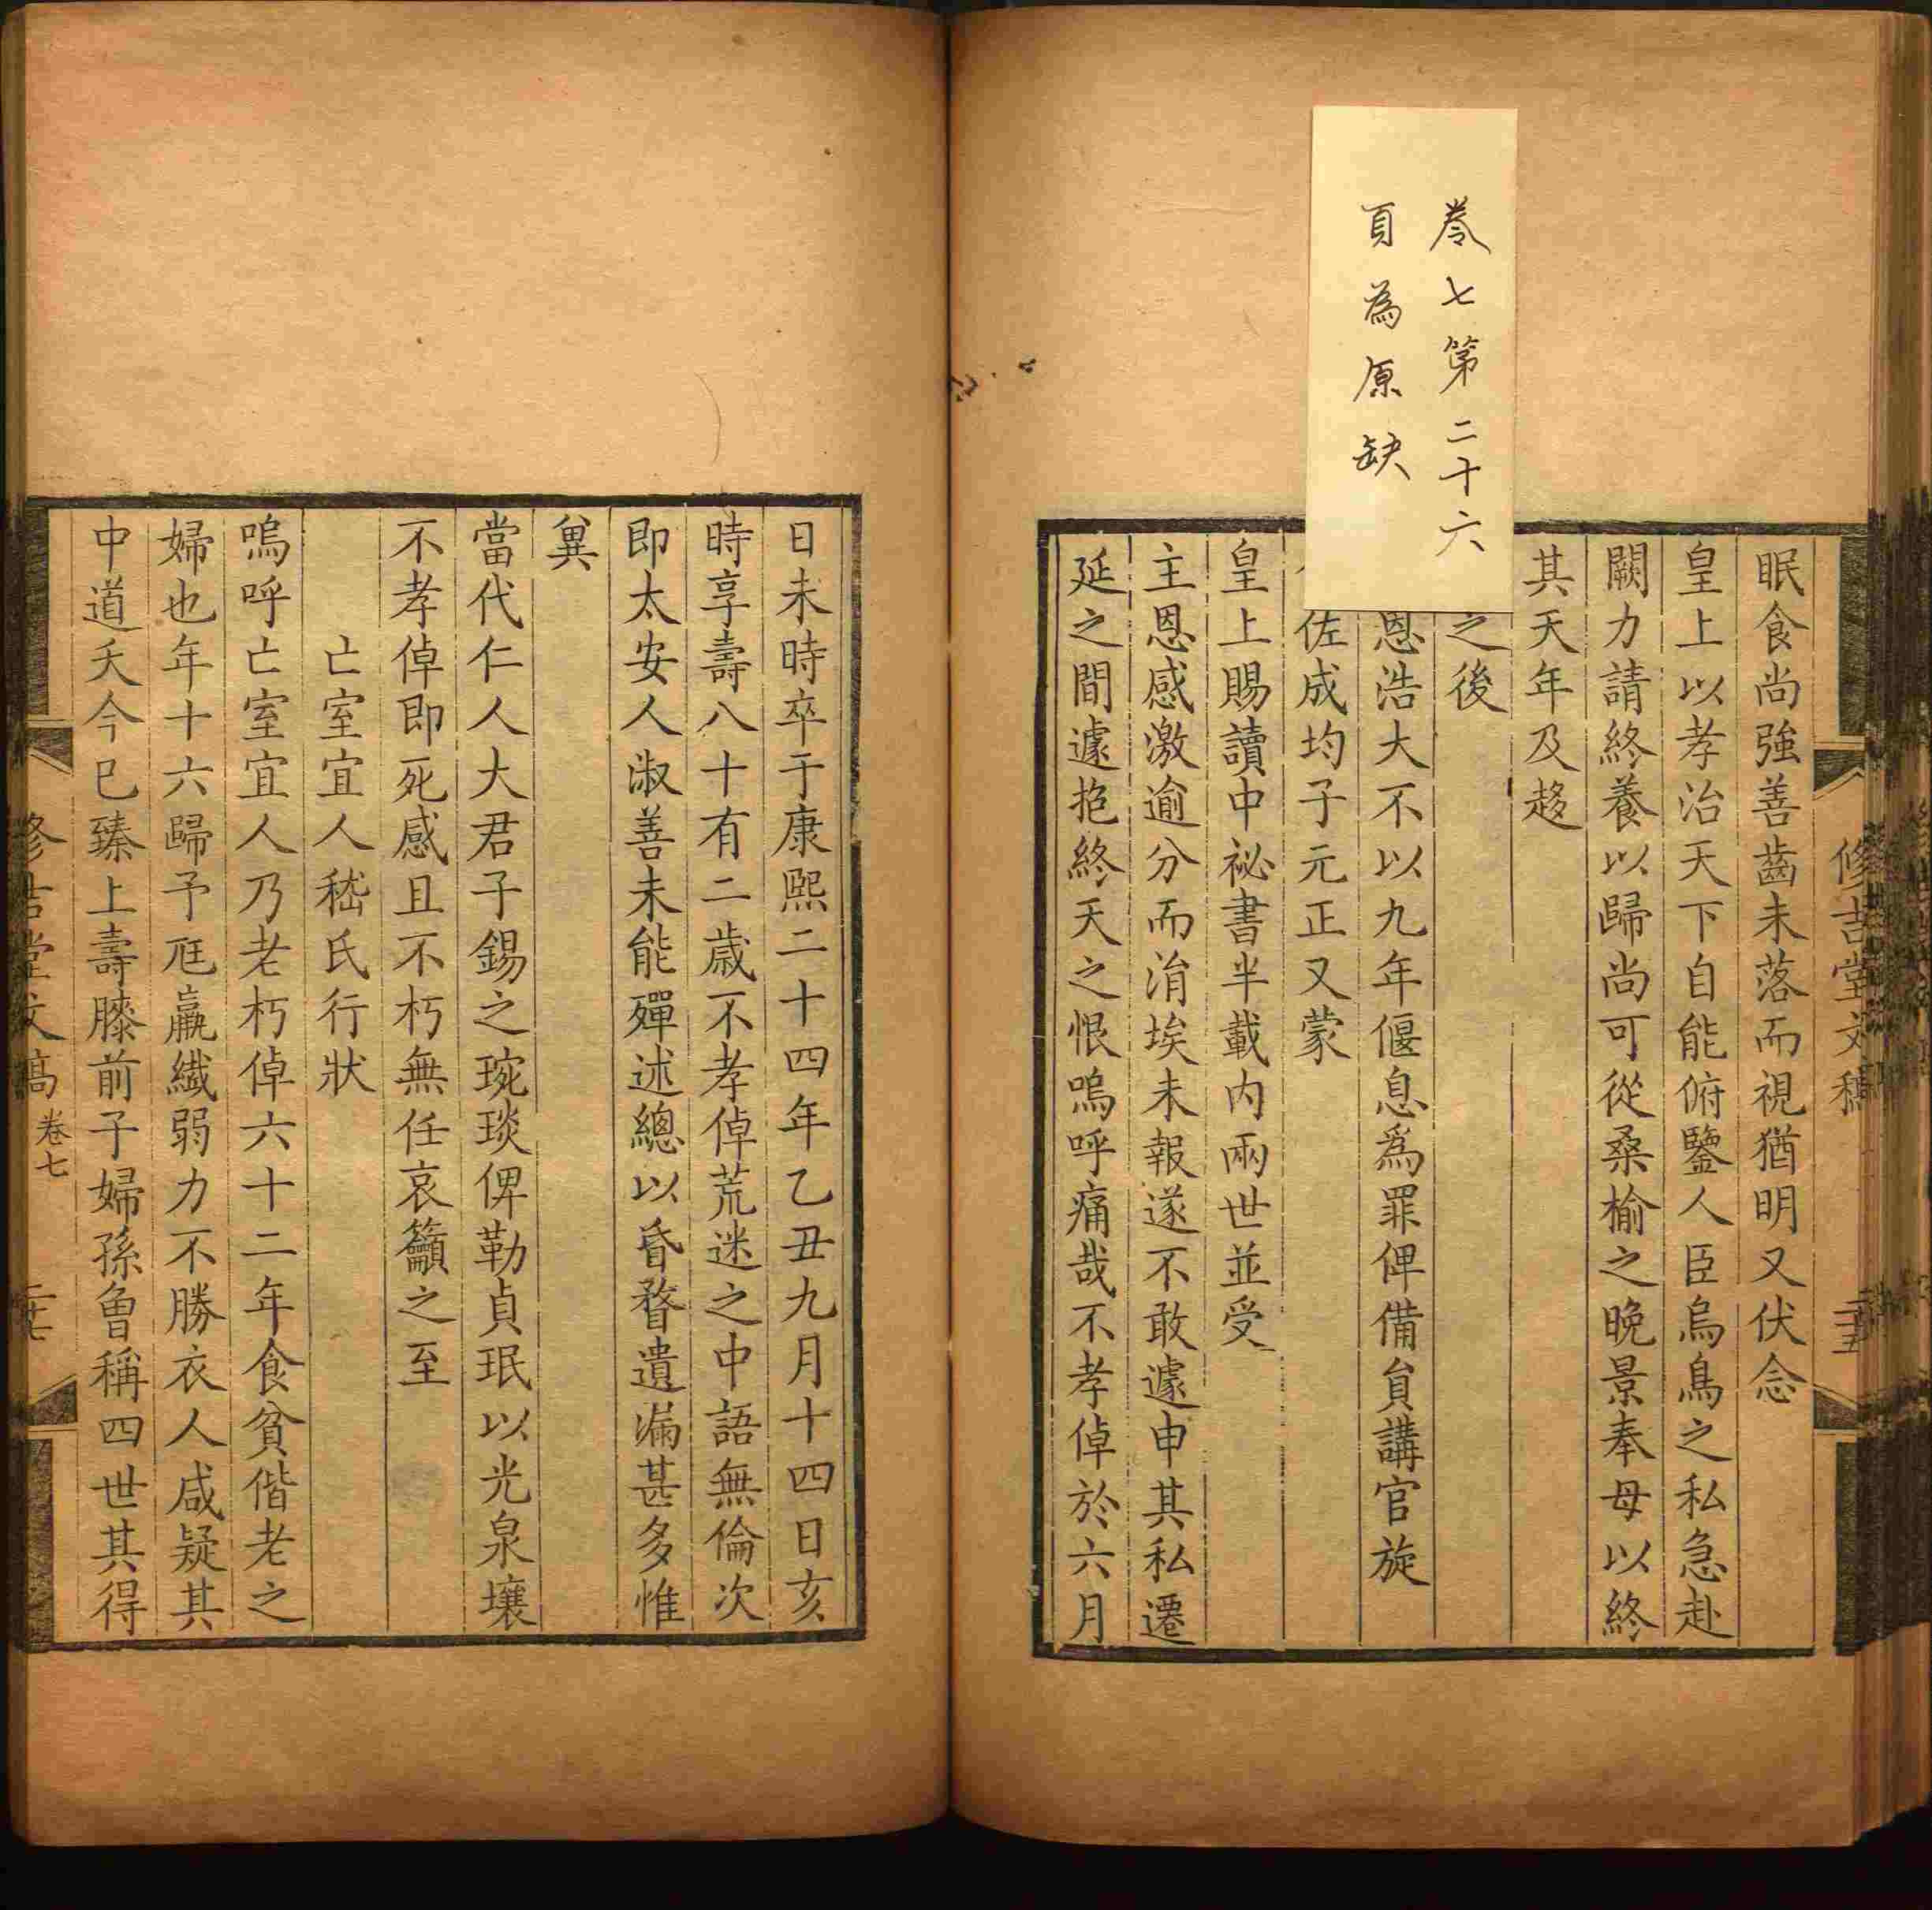 卷七第二十六
頁為原缺
修吉堂文稿
二十五
眠食尚強善齒未落而視猶明又伏念
皇上以孝治天下自能俯鑒人臣烏鳥之私急赴
闕力請終養以歸尚可從桑榆之晚景奉母以終
其天年及趍
之後
恩浩大不以九年偃息爲罪俾備貟講官旋
佐成均子元正又蒙
皇上賜讀中祕書半載内兩世並受
主恩感激逾分而涓埃未報遂不敢遽申其私遷
延之間遽抱終天之恨嗚呼痛哉不孝倬於六月
日未時卒于康熙二十四年乙丑九月十四日亥
時享壽八十有二歲不孝倬荒迷之中語無倫次
即太安人淑善未能殫述總以昏瞀遺漏甚多惟
兾
當代仁人大君子錫之琬琰俾勒貞珉以光泉壤
不孝倬即死感且不朽無任哀籲之至
亡室宜人嵇氏行狀
嗚呼亡室宜人乃老朽倬六十二年食貧偕老之
婦也年十六歸予尫羸纖弱力不勝衣人咸疑其
中道夭今已臻上壽膝前子婦孫曾稱四世其得
修吉堂文稿 卷七
二十七